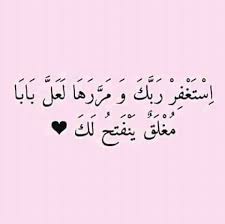 اِسْتَغْفِرْ رَبَّكَ وَ مَرَّرَهَا لَعَلَّ بَابَا
مُغْلَقٌ يَنْفَتِحُ لَكَ ♥